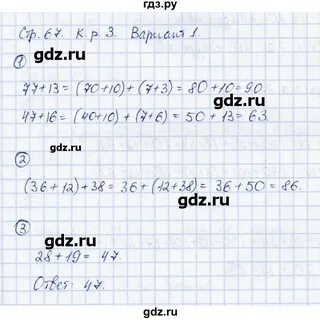 гдз.ру
Стр. 67. К. р. 3. Вариант 1.
gdz.ru
1
77+13 = (70+10) + (7+3) = 80 + 10 = 90.
47+16 = (40+10) + (7+6) = 50 + 13 = 63.
gdz.ru
2
(36 + 12) + 38 = 36 + (12+38) = 36 + 50 = 86.
gdz.ru
3
28 + 19 = 47.
gdz.ru
Ответ: 47.
gdz.ru